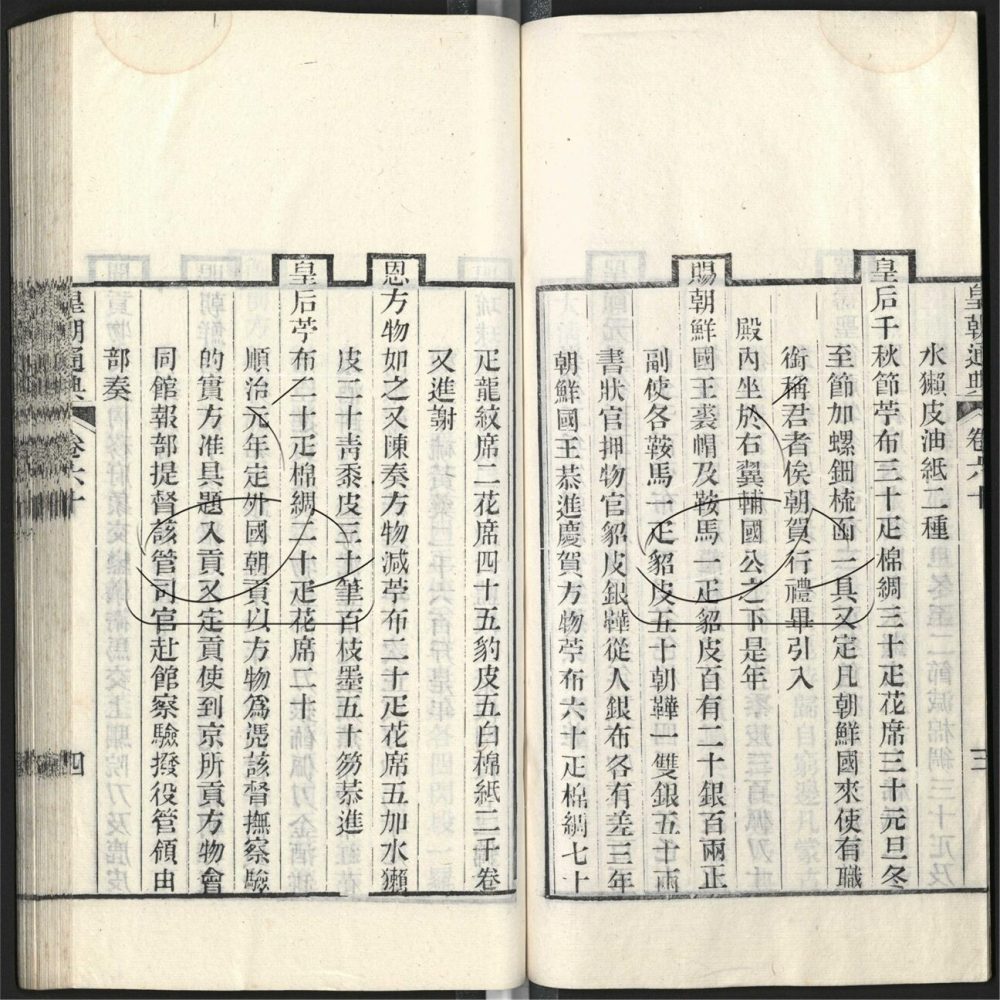 皇朝通典 卷六十 三
水獺皮油紙二種
皇后千秋節苧布三十疋棉綢三十疋花席三十元旦冬
至節加螺鈿梳函二具又定凡朝鮮國來使有職
銜稱君者俟朝賀行禮畢引入
殿內坐於右翼輔國公之下是年
賜朝鮮國王裘帽及鞍馬一疋貂皮百有二十銀百兩正
副使各鞍馬一疋貂皮五十朝鞾一雙銀五十兩
書狀官押物官貂皮銀鞾從人銀布各有差三年
朝鮮國王恭進慶賀方物苧布六十疋棉綢七十
疋龍紋席二花席四十五豹皮五白棉紙二千卷
又進謝
恩方物如之又陳奏方物減苧布二十疋花席五加水獺
皮二十靑黍皮三十筆百枝墨五十笏恭進
皇后苧布二十疋棉綢二十疋花席二十
順治元年定外國朝貢以方物爲憑該督撫察驗
的實方准具題入貢又定貢使到京所貢方物會
同館報部提督該管司官赴館察驗撥役管領由
部奏
皇朝通典 卷六十 四